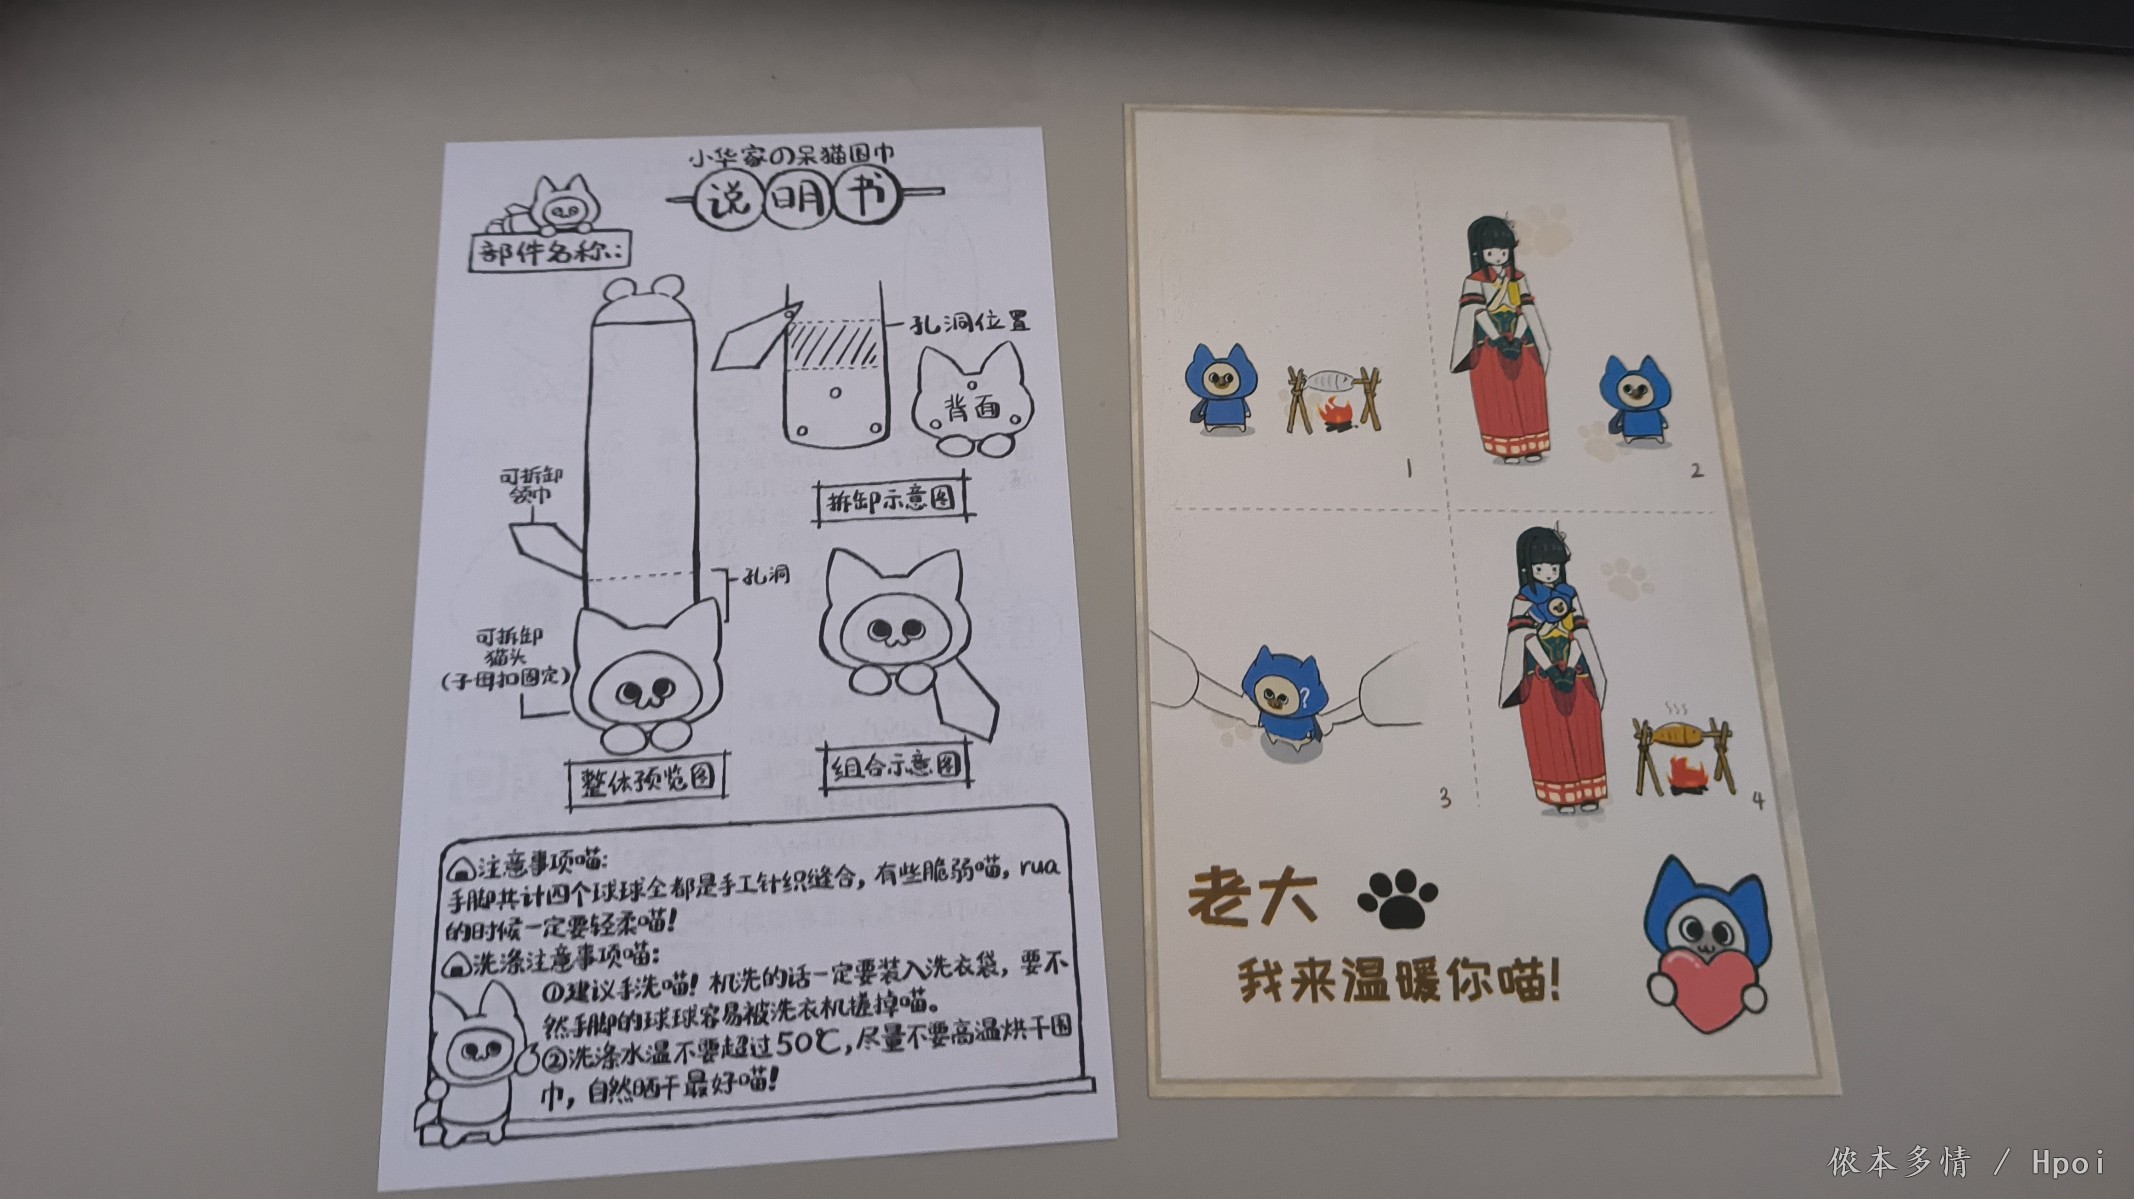 小华家の呆猫围巾
说明书
部件名称:
孔洞位置
背面
可拆卸
领巾
拆卸示意图
孔洞
可拆卸
猫头
(子母扣固定)
整体预览图
组合示意图
注意事项喵:
手脚共计四个球球全都是手工针织缝合,有些脆弱喵,rua
的时候一定要轻柔喵!
洗涤注意事项喵:
①建议手洗喵!机洗的话一定要装入洗衣袋,要不
然手脚的球球容易被洗衣机搓掉喵。
②洗涤水温不要超过50℃,尽量不要高温烘干围
巾,自然晒干最好喵!
1
2
?
3
4
老大
我来温暖你喵!
侬本多情 / Hpoi